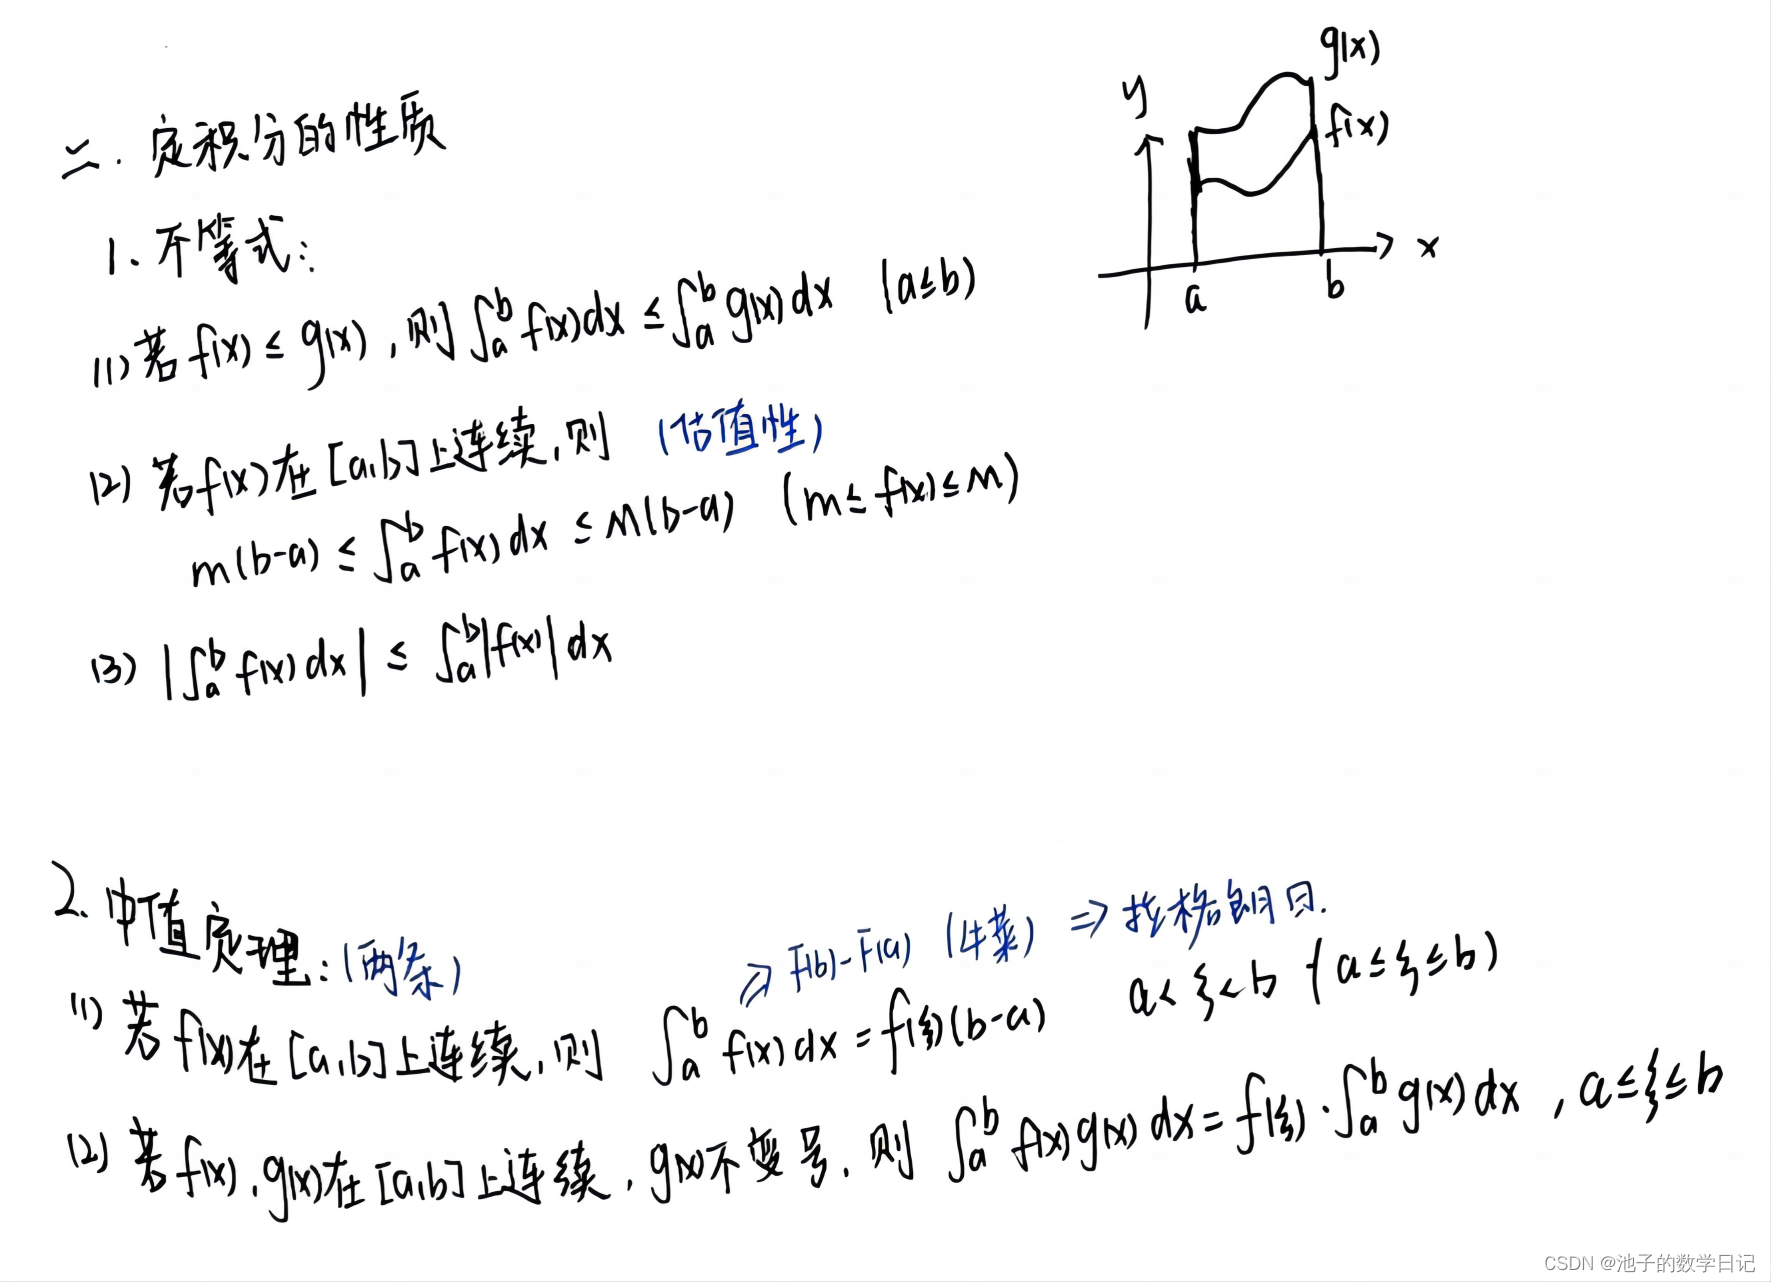 二. 定积分的性质
1、不等式:
(1) 若 f(x) ≤ g(x), 则 ∫_a^b f(x)dx ≤ ∫_a^b g(x)dx (a≤b)
(2) 若f(x)在[a,b]上连续,则 (估值性)
m(b-a) ≤ ∫_a^b f(x)dx ≤ M(b-a) (m≤f(x)≤M)
(3) |∫_a^b f(x)dx| ≤ ∫_a^b |f(x)|dx
y
g(x)
f(x)
x
a
b
2. 中值定理: (两条)
⇒ F(b)-F(a) (牛莱) ⇒ 拉格朗日.
(1) 若f(x)在[a,b]上连续,则 ∫_a^b f(x)dx = f(ξ)(b-a) a<ξ<b (a≤ξ≤b)
(2) 若f(x), g(x)在[a,b]上连续, g(x)不变号, 则 ∫_a^b f(x)g(x)dx = f(ξ)·∫_a^b g(x)dx , a≤ξ≤b
CSDN @池子的数学日记